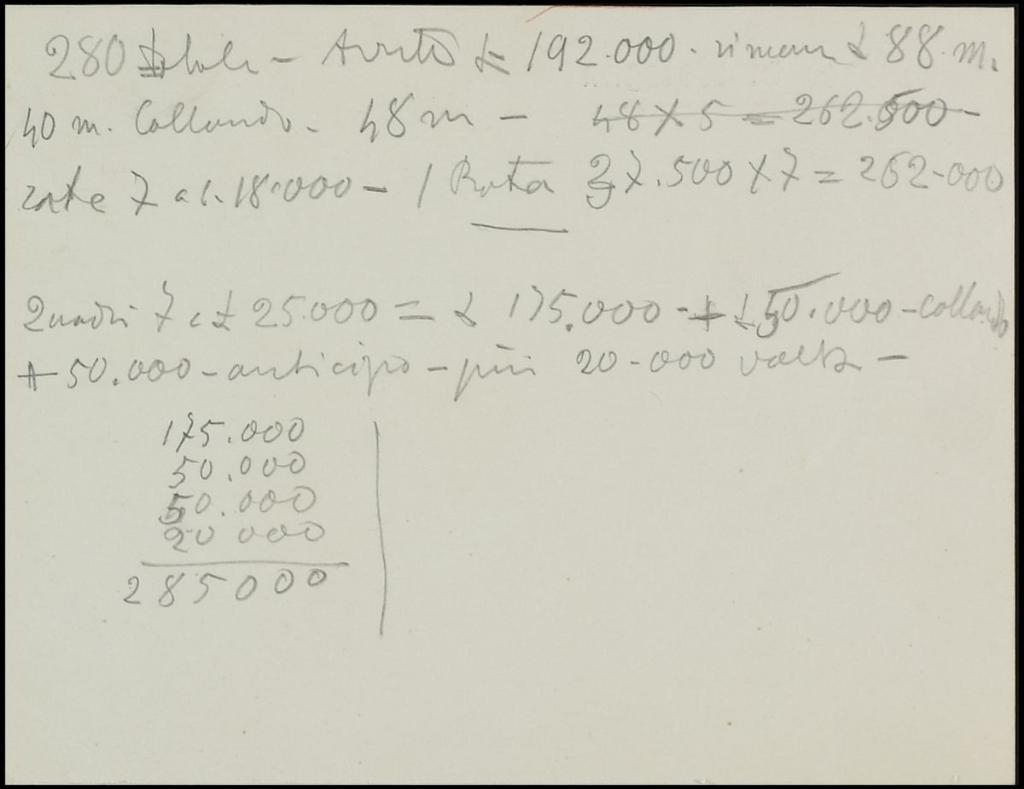 280 - Avuto £ 192.000. riman £ 88 m.
40 m. Collaudo. 48 m - 48 X 5 = 262.500 -
rate 7 a £. 18.000 - 1 Rata 37.500 X 7 = 262.000
Quadri 7 a £ 25.000 = £ 175.000 - + £ 50.000 - collaudo
+ 50.000 - anticipo - più 20.000 -
175.000
50.000
50.000
20 000
285000